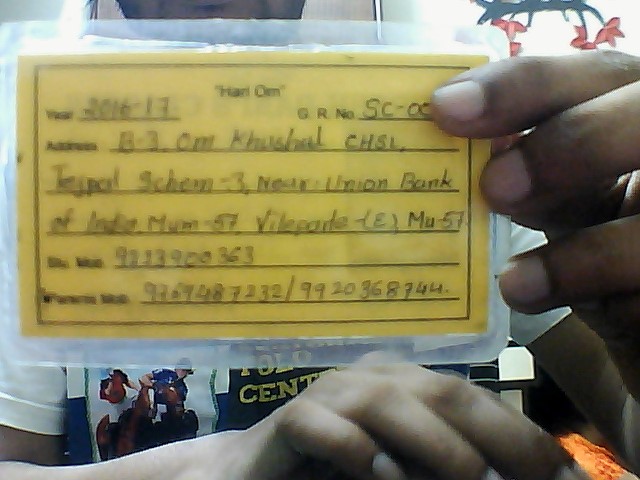 "Hari Om"
Year 2016-17 G. R. No. SC-00
Address B-3, Om Khushal CHSL,
Tejpal Schem-3, Near Union Bank
of India Mum-57 Vileparle-(E) Mu-57
Stu. Mob. 9223900363
Parents Mob. 9769487232/9920368744.
POLO
CENT